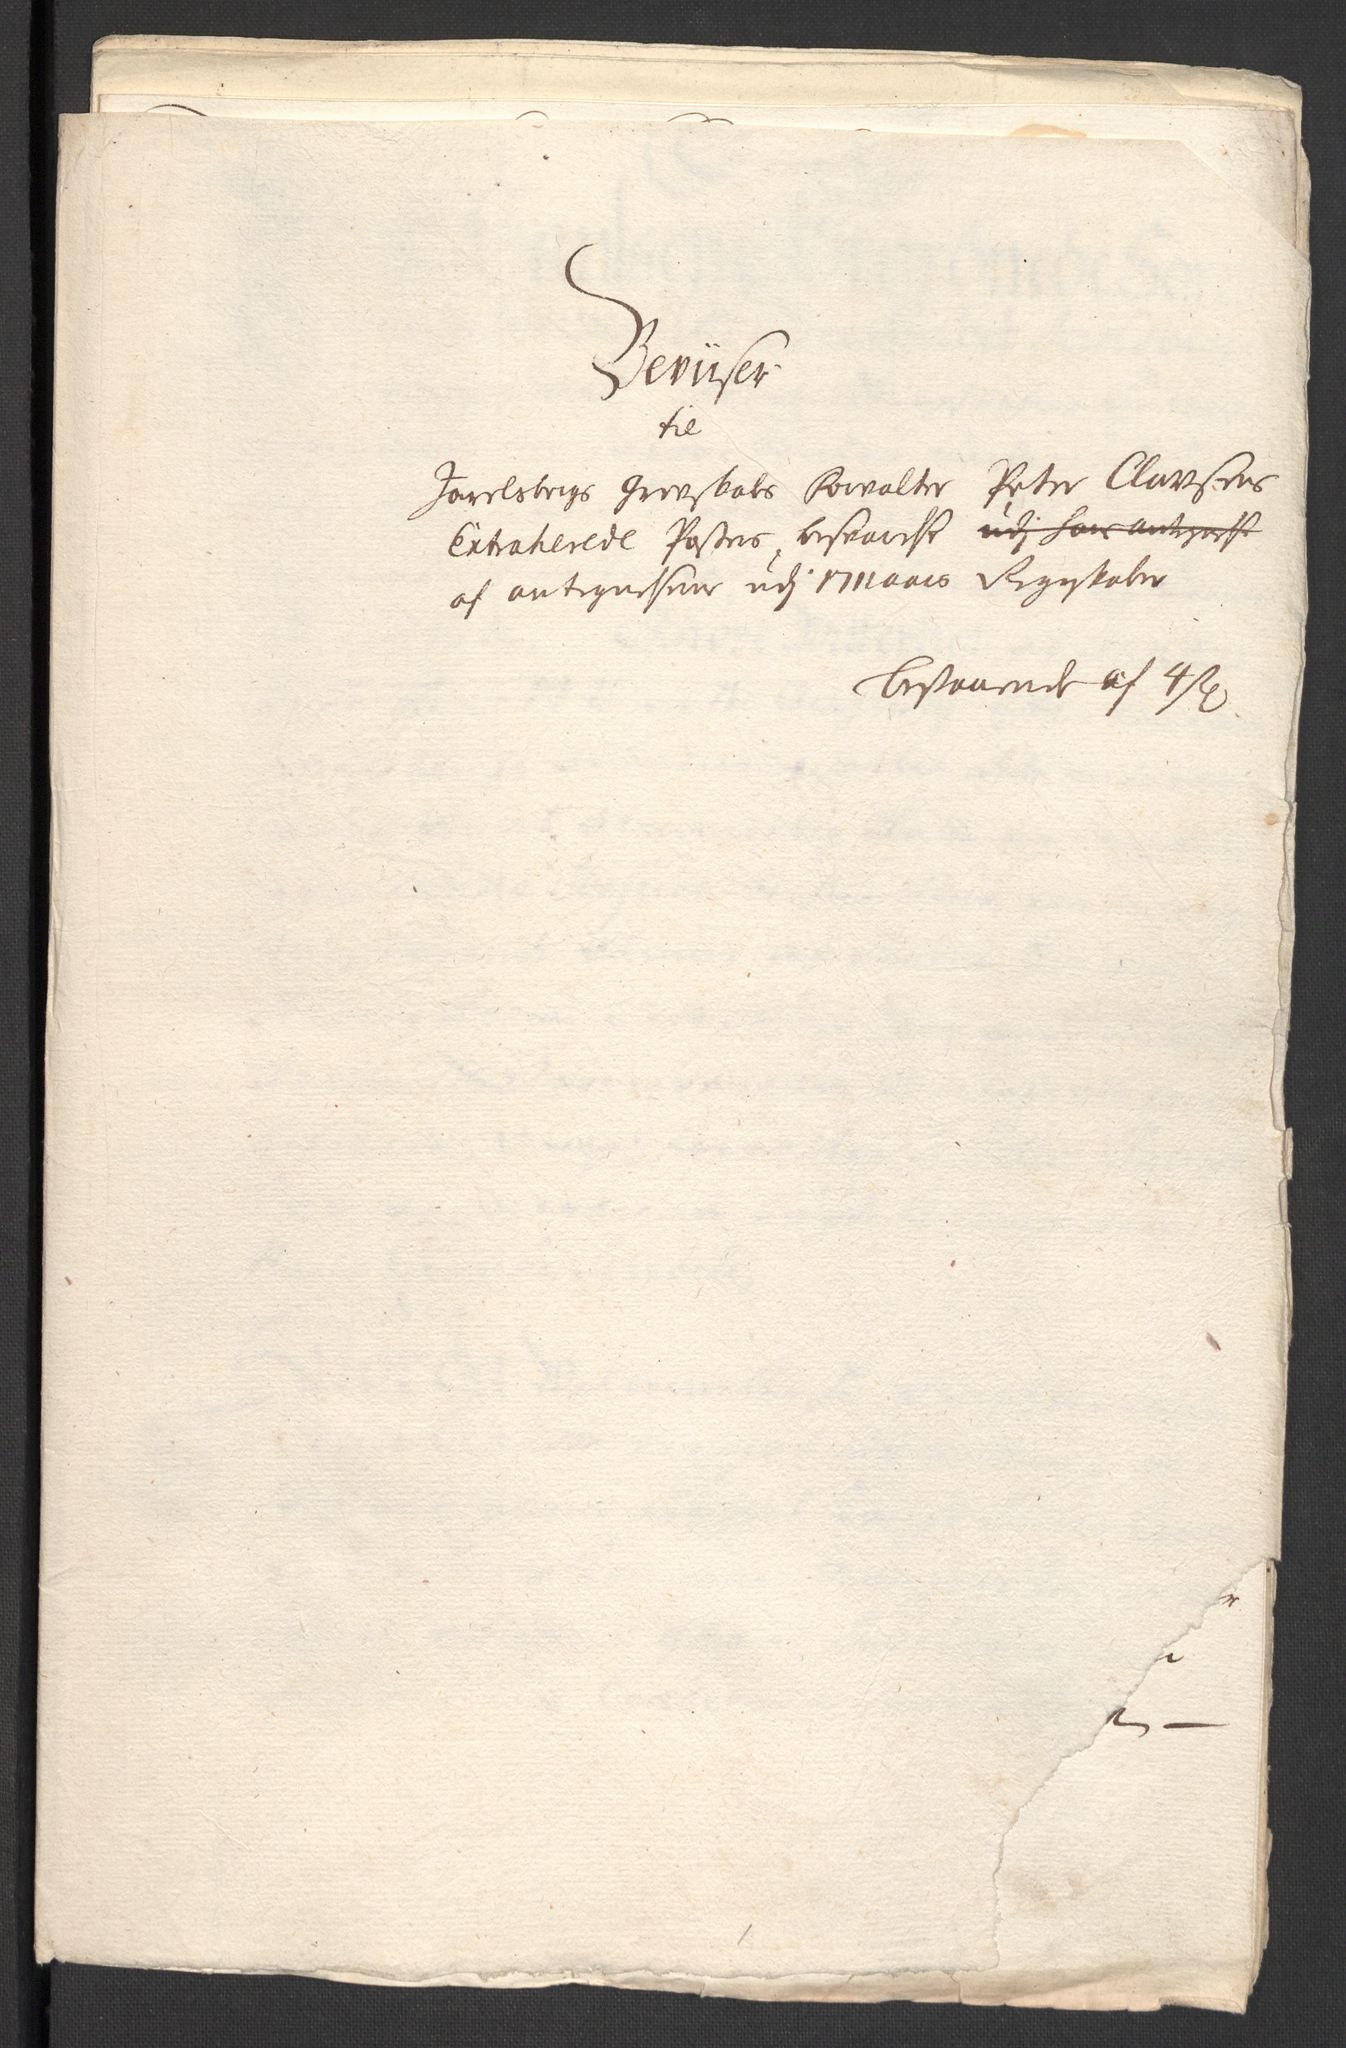 Beviiser
til
Jarelsbergs Grevskabs Forvalter Peter Clausens
Extraherede Poster, besvarelse udj hans antegnelse
af antegnelserne udj 1711 aars Regnskaber
bestaaende af 4